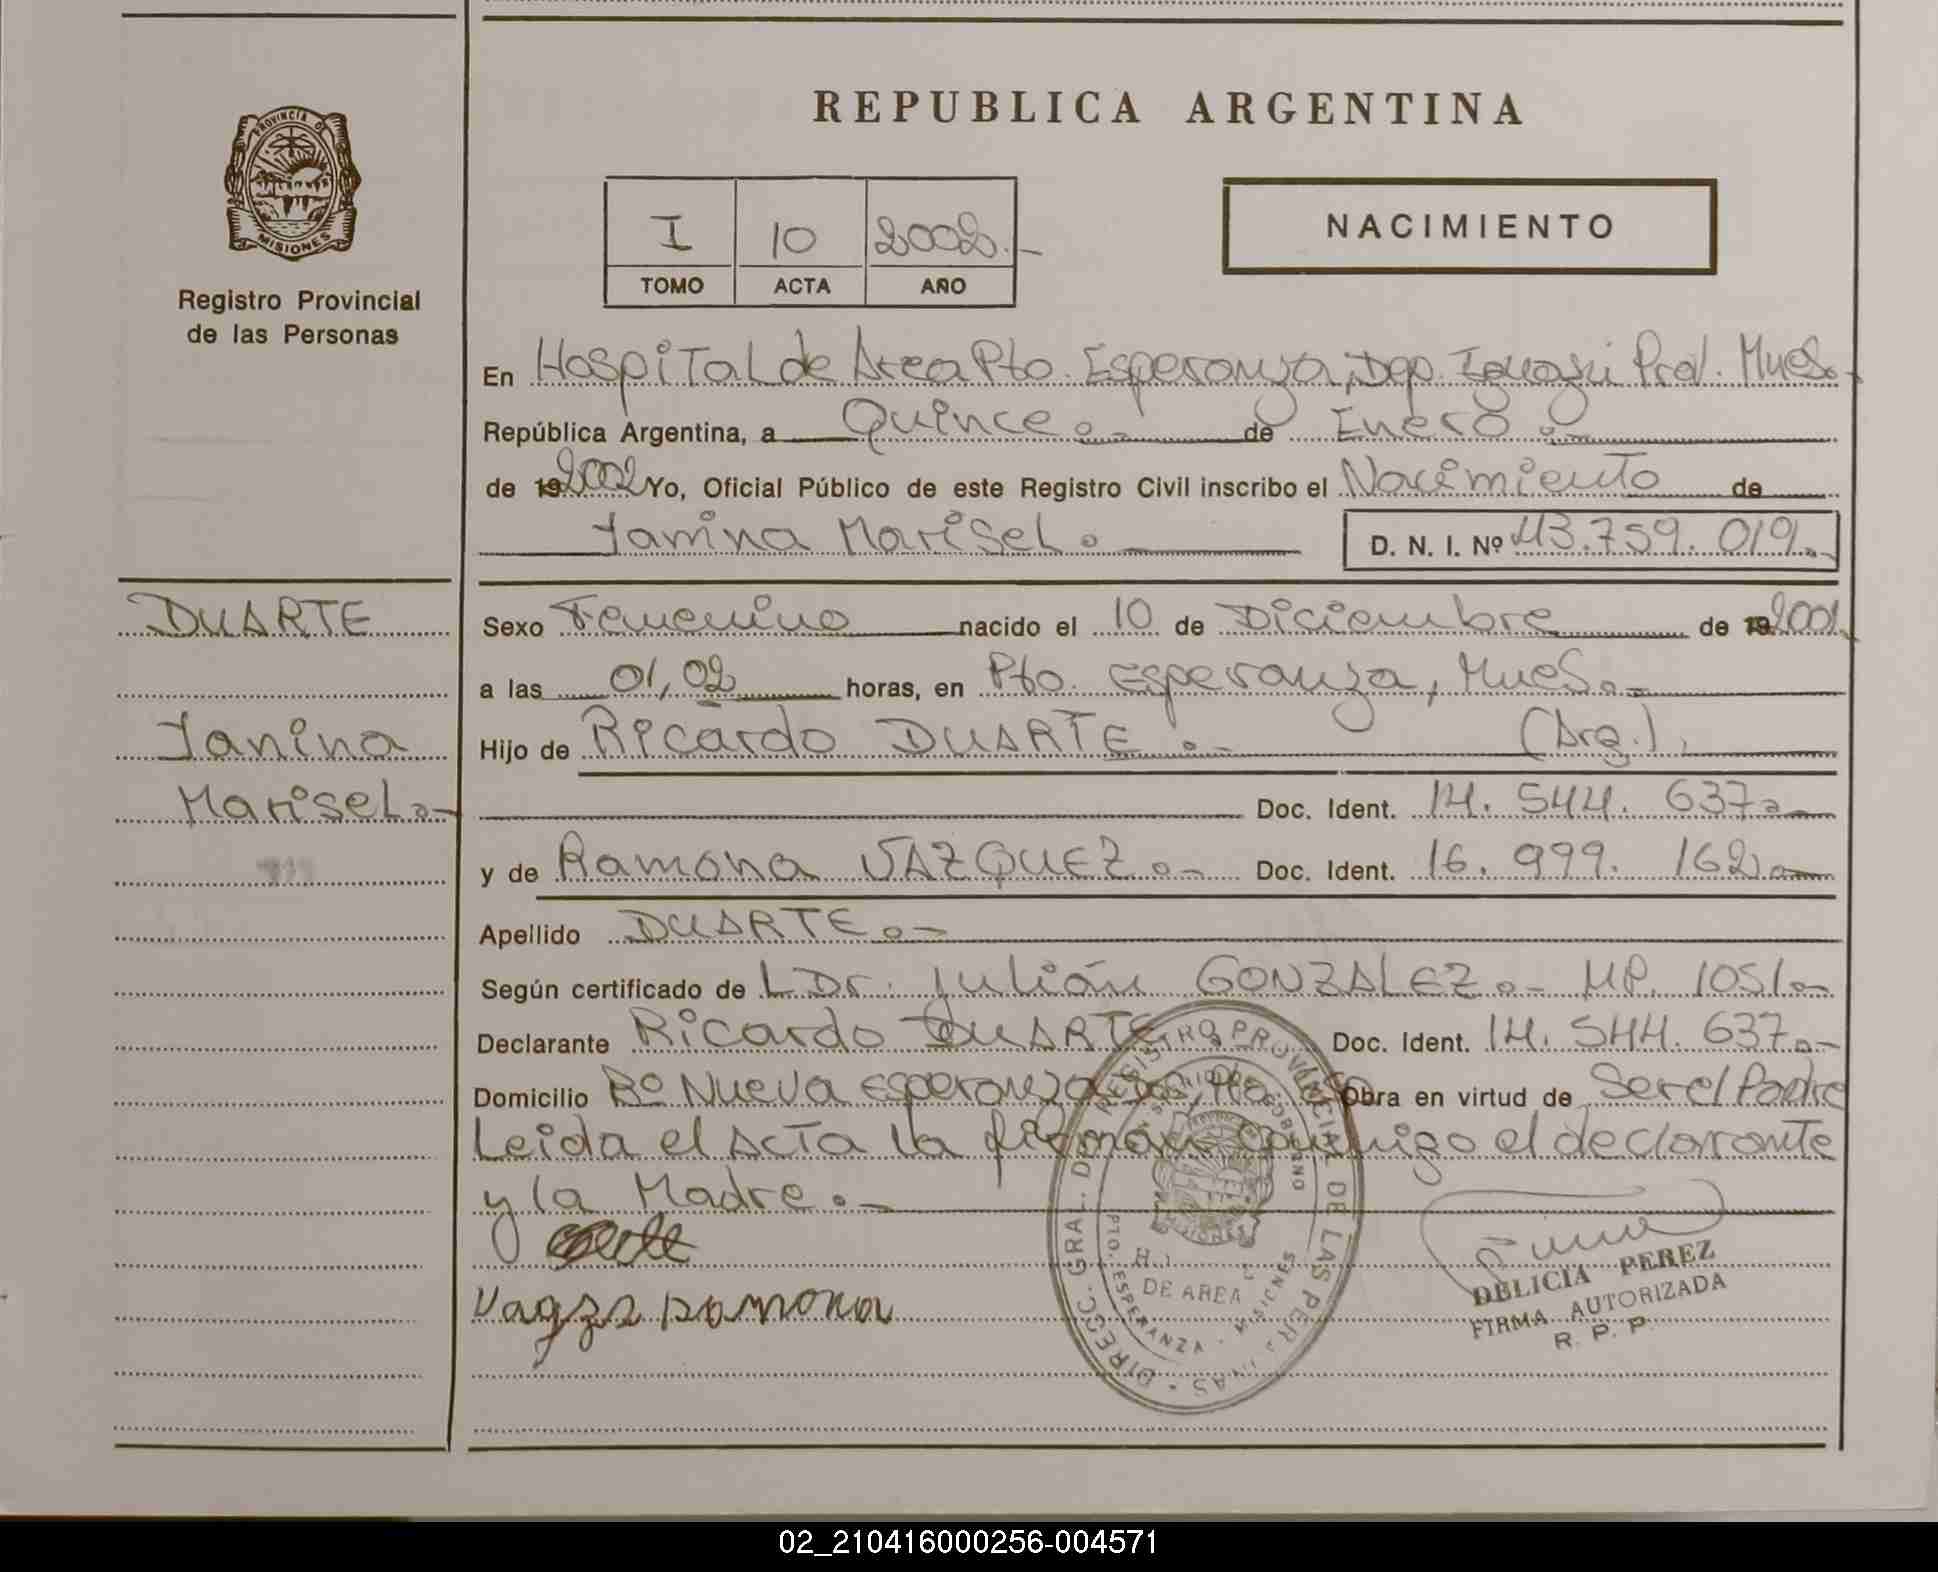 REPUBLICA ARGENTINA
PROVINCIA D
MISIONES
Registro Provincial
de las Personas
I 10 2002.-
TOMO ACTA AÑO
NACIMIENTO
En Hospital de Area Pto. Esperanza, Dep. Iguazú Prov. Mnes.-
República Argentina, a Quince.- de Enero.-
de 19 2002 Yo, Oficial Público de este Registro Civil inscribo el Nacimiento de
Yanina Marisel.- D. N. I. Nº 43.759.019.-
DUARTE
Yanina
Marisel.-
Sexo Femenino nacido el 10 de Diciembre de 19 2001.
a las 01,02 horas, en Pto. Esperanza, Mnes.-
Hijo de Ricardo DUARTE.- (Arg.).
Doc. Ident. 14. 544. 637.-
y de Ramona VAZQUEZ.- Doc. Ident. 16. 999. 162.-
Apellido DUARTE.-
Según certificado de L Dr. Julián GONZALEZ.- MP. 1051.-
Declarante Ricardo DUARTE Doc. Ident. 14. 544. 637.-
Domicilio Bº Nueva Esperanza Obra en virtud de Ser el Padre
Leida el Acta la firman conmigo el declarante
y la Madre.-
ramona
DIRECC. GRAL. DEL REGISTRO PROVINCIAL DE LAS PERSONAS
MINISTERIO DE GOBIERNO
MISIONES
DE AREA
PTO. ESPERANZA - MISIONES
DELICIA PEREZ
FIRMA AUTORIZADA
R. P. P.
02_210416000256-004571